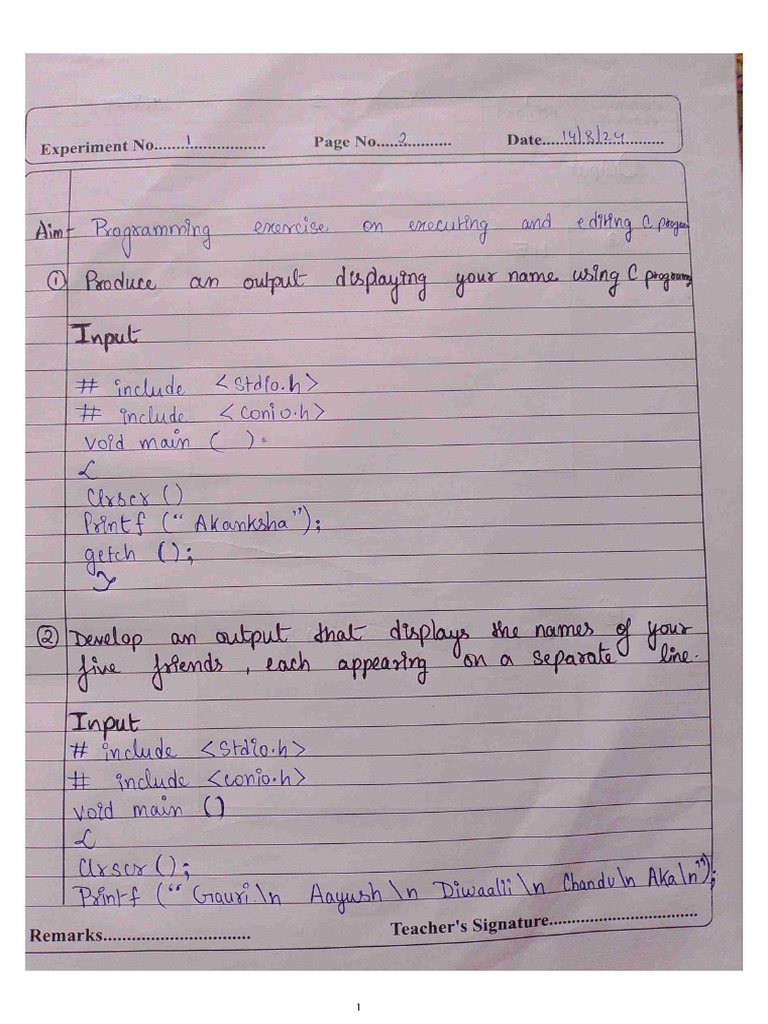 Experiment No..........1................ Page No.....2.......... Date.....14/8/24.............
Aim:- Programming exercise on executing and editing C progra
① Produce an output displaying your name using C programg
Input
# include <stdio.h>
# include <conio.h>
void main ( )
{
Clrscr ()
Printf (“ Akanksha”);
getch ();
}
② Develop an output that displays the names of your
five friends , each appearing on a separate line.
Input
# include <stdio.h>
# include <conio.h>
void main ()
{
Clrscr ();
Printf (“ Gauri.\n Aayush \n Diwaalii \n Chandu\n Aka\n”);
Remarks............................... Teacher's Signature...............................
1